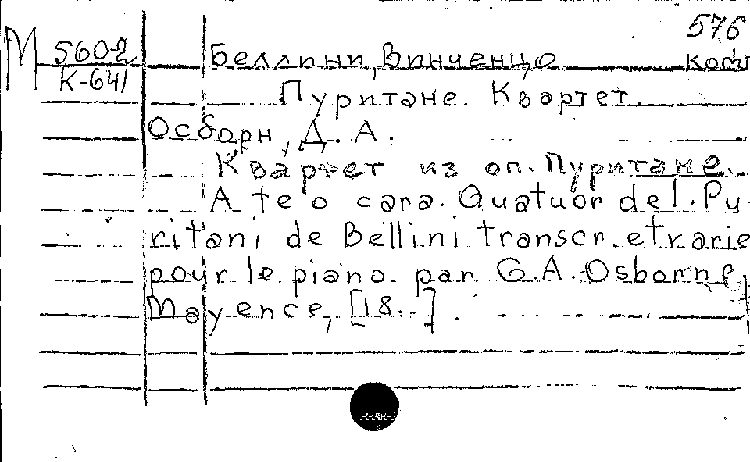 576
М 560-2 Беллини, Винченцо
К-641
Пуритане. Квартет.
Осборн, Д. А.
Квартет из оп. Пуритане.
A te o cara. Quatuor de l. Pu-
ritani de Bellini transcr. et varie
pour le piano par G. A. Osborne,
Mayence, [18..].